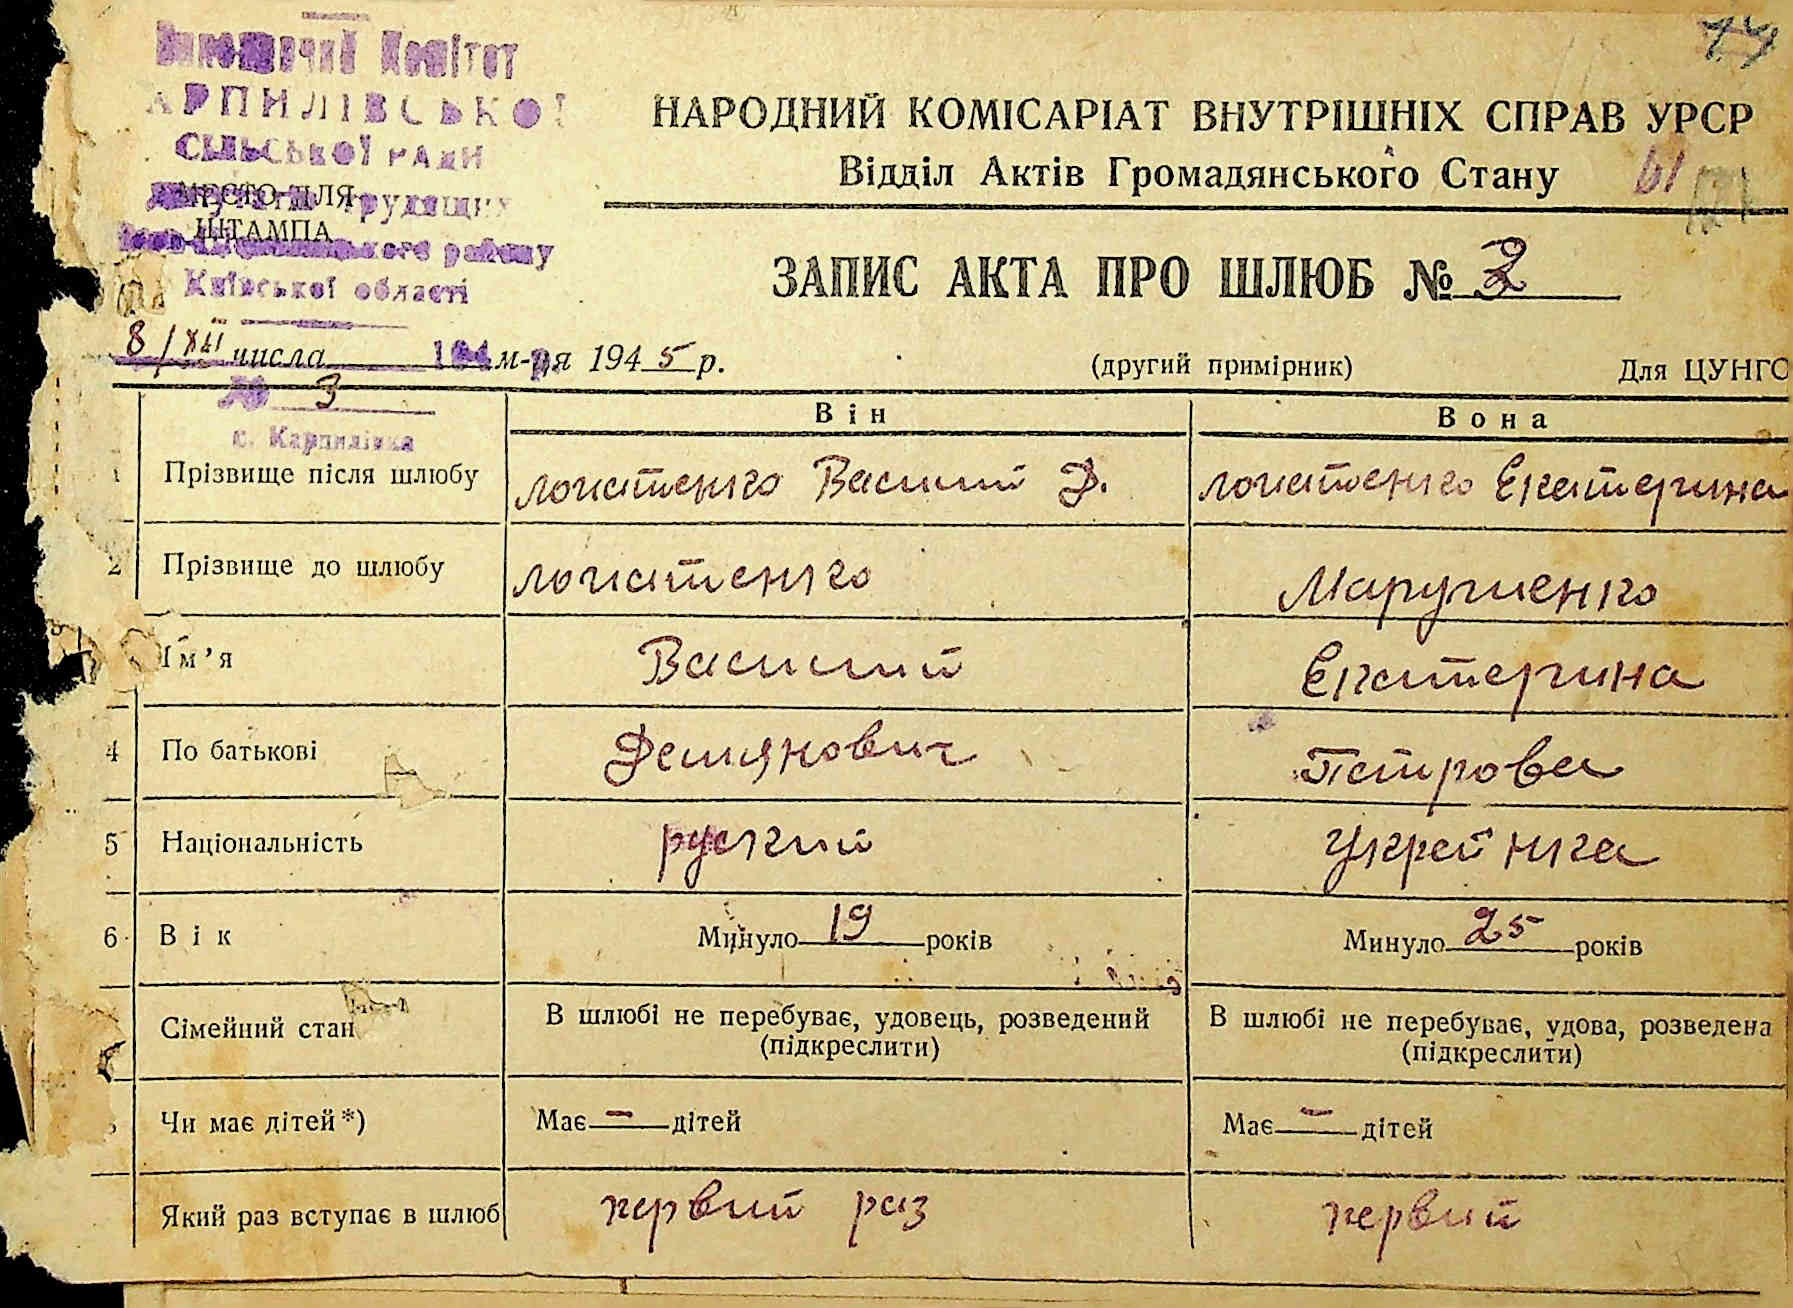 Виконавчий Комітет
АРПИЛІВСЬКОЇ
СІЛЬСЬКОЇ РАДИ
МЕСТО ДЛЯ
трудящих
ШТАМПА
району
Київської області
НАРОДНИЙ КОМІСАРІАТ ВНУТРІШНІХ СПРАВ УРСР
Відділ Актів Громадянського Стану 61
ЗАПИС АКТА ПРО ШЛЮБ № 2
8/XII числа м-ця 1945 р.
(другий примірник) Для ЦУНГО
3
с. Карпилівка
Він Вона
1 Прізвище після шлюбу Лопатенко Василий Д. Лопатенко Екатерина
2 Прізвище до шлюбу Лопатенко Марущенко
Ім'я Василий Екатерина
4 По батькові Демянович Петрова
5 Національність руский Украйнка
6 Вік Минуло 19 років Минуло 25 років
Сімейний стан В шлюбі не перебуває, удовець, розведений (підкреслити) В шлюбі не перебуває, удова, розведена (підкреслити)
Чи має дітей *) Має — дітей Має — дітей
Який раз вступає в шлюб первий раз первий